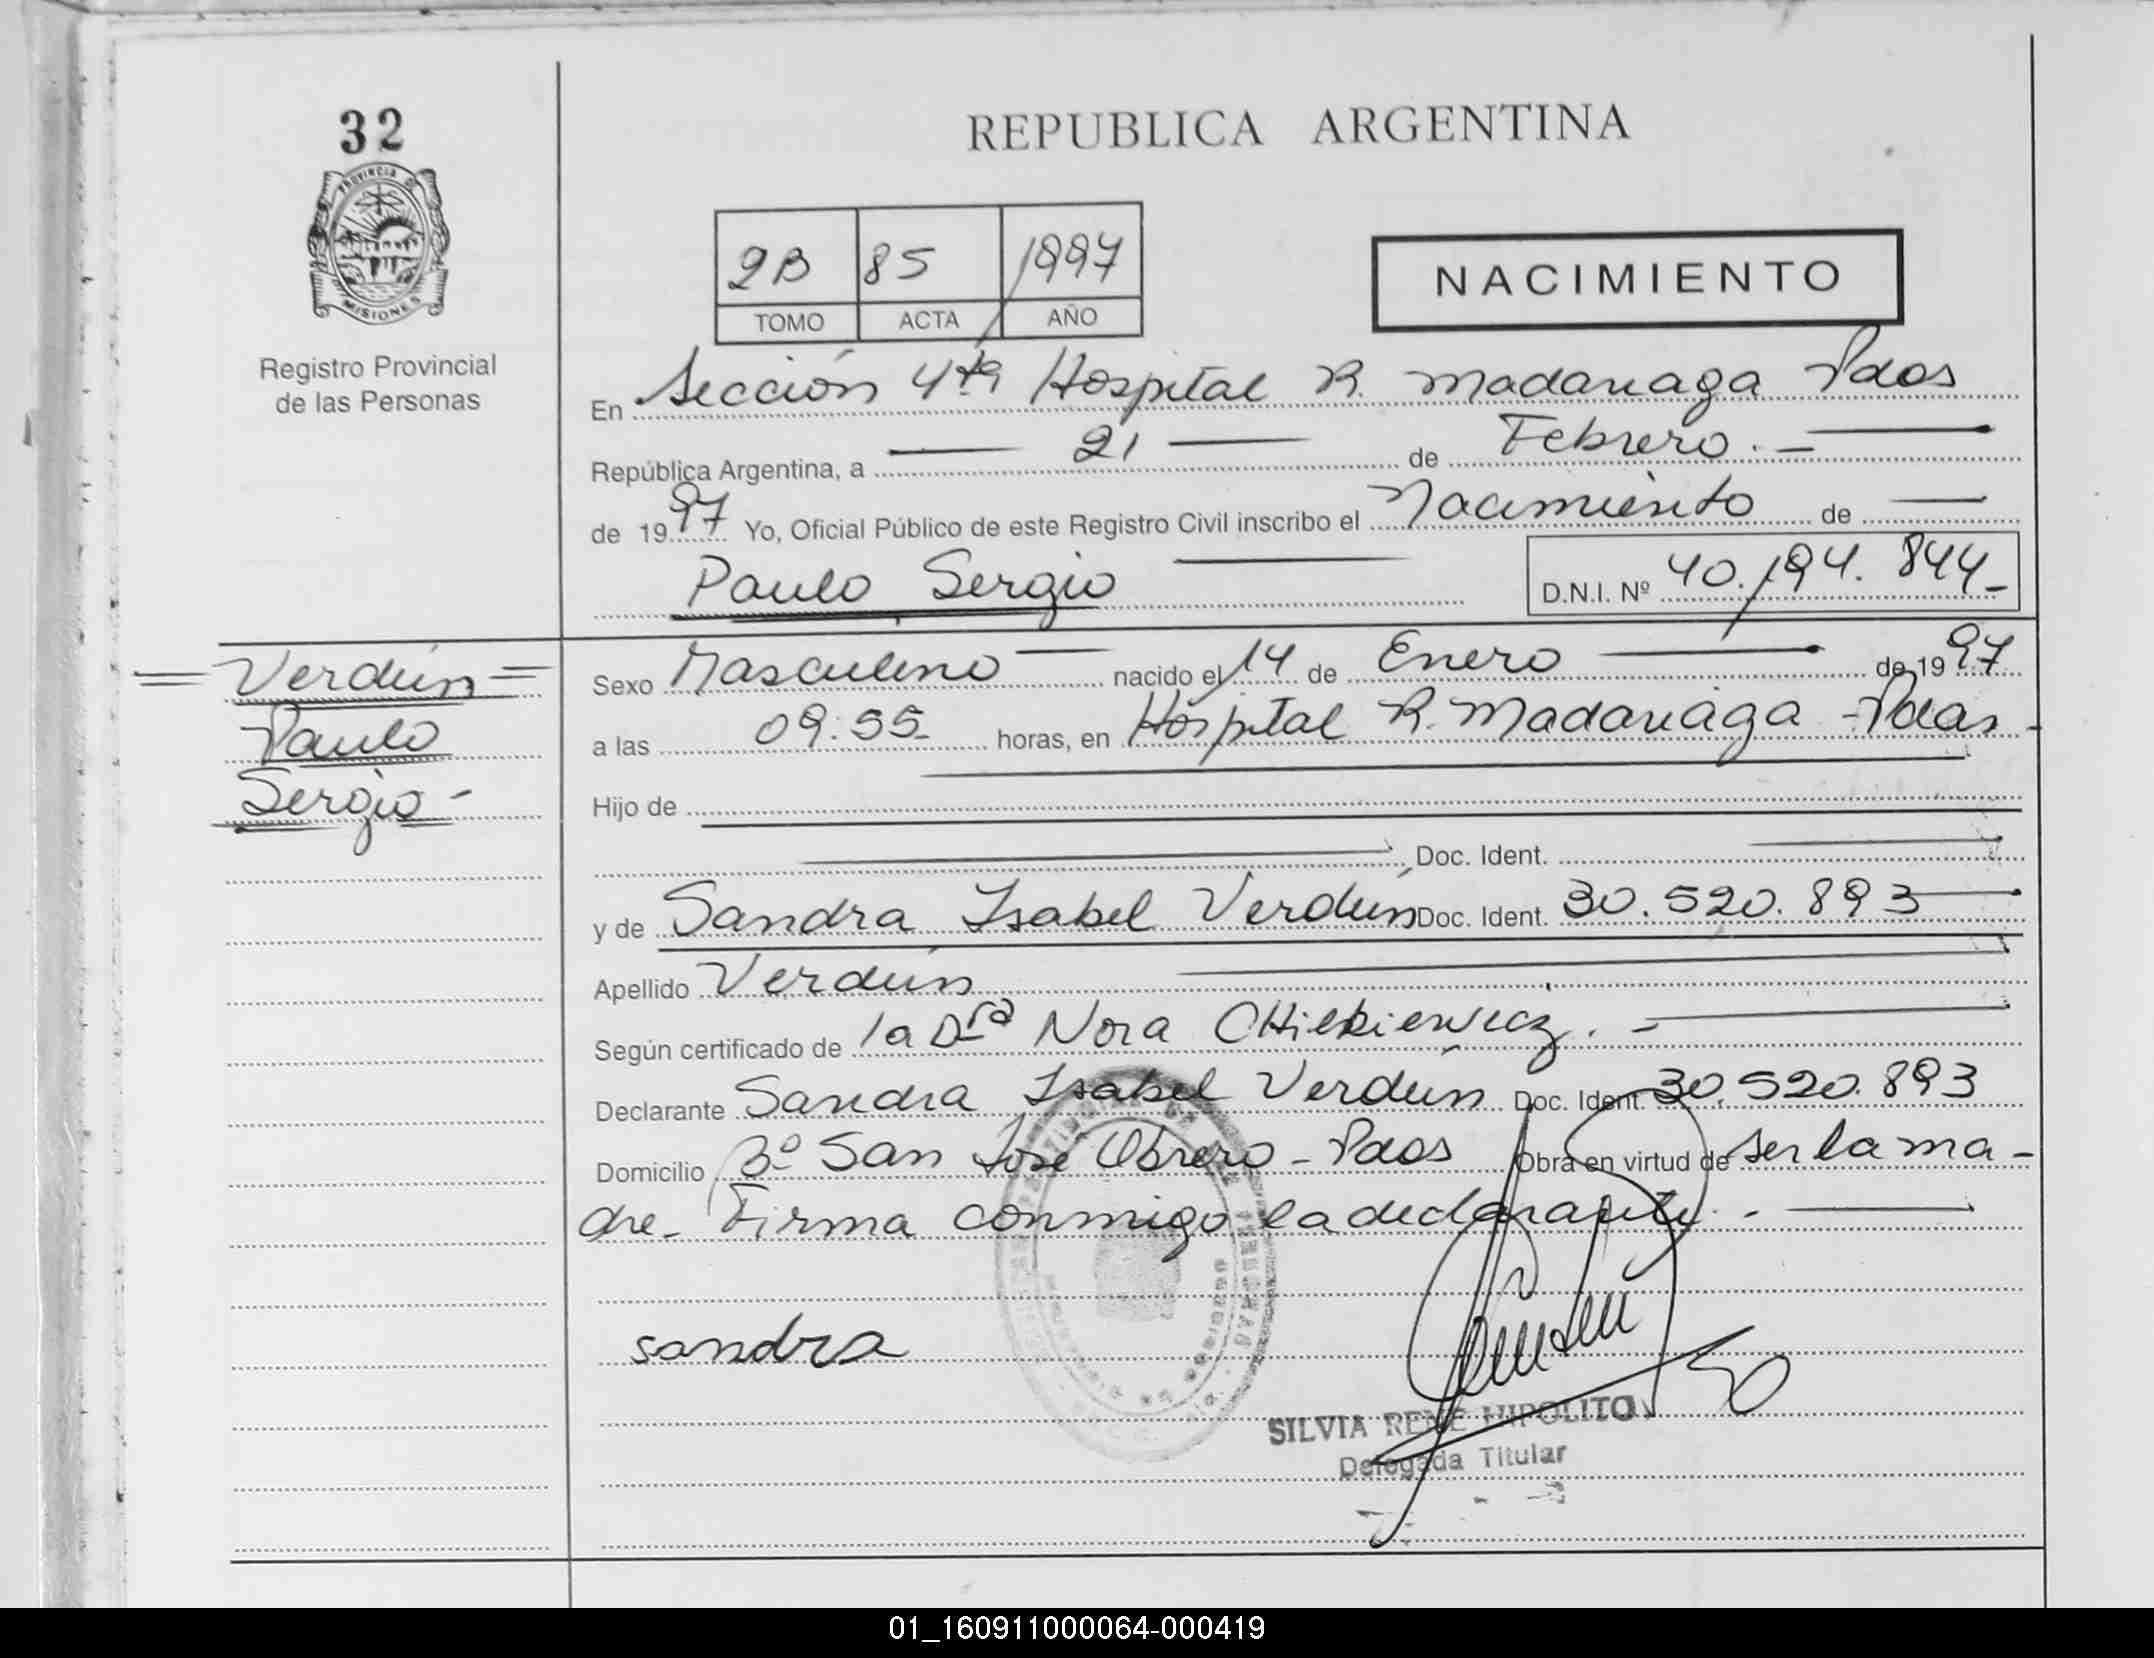 32
PROVINCIA DE
MISIONES
Registro Provincial
de las Personas
REPUBLICA ARGENTINA
2B 85 1997
TOMO ACTA AÑO
NACIMIENTO
En Sección 4ta Hospital R. Madariaga Pdas
República Argentina, a 21 de Febrero. -
de 1997 Yo, Oficial Público de este Registro Civil inscribo el Nacimiento de
Paulo Sergio D.N.I. Nº 40.194.844-
= Verdún =
Paulo
Sergio -
Sexo Masculino nacido el 14 de Enero de 1997
a las 09:55 horas, en Hospital R. Madariaga - Pdas -
Hijo de
Doc. Ident.
y de Sandra Isabel Verdún Doc. Ident. 30.520.893
Apellido Verdún
Según certificado de la Dra Nora . -
Declarante Sandra Isabel Verdún Doc. Ident. 30.520.893
Domicilio Bº San José Obrero - Pdas Obra en virtud de ser la ma-
dre- Firma conmigo la declarante. -
sandra
SILVIA RENE HIPOLITO
Delegada Titular
01_160911000064-000419